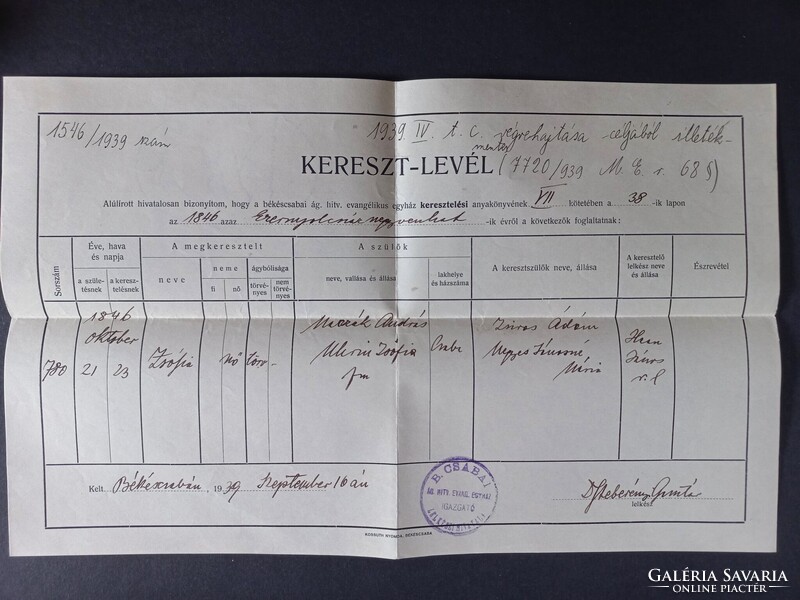 1546/1939 szám
1939. IV. t. c. végrehajtása céljából illeték-
mentes
KERESZT-LEVÉL (7720/939 M. E. r. 68 §)
Alúlírott hivatalosan bizonyítom, hogy a békéscsabai ág. hitv. evangélikus egyház keresztelési anyakönyvének VII kötetében a 38-ik lapon
az 1846 azaz Ezernyolcszáznegyvenhat -ik évről a következők foglaltatnak:
Sorszám
Éve, hava és napja
a születésnek
a keresztelésnek
A megkeresztelt
neve
neme
fi
nő
ágybólisága
törvényes
nem törvényes
A szülők
neve, vallása és állása
lakhelye és házszáma
A keresztszülők neve, állása
A keresztelő lelkész neve és állása
Észrevétel
1846
október
780
21
23
Zsófia
nő
törv-
András
Zsófia
fm
Csaba
Ádám
Mária
János
Kelt Békéscsabán, 1939 Szeptember 16 án
B. CSABAI
ÁG. HITV. EVANG. EGYHÁZ
IGAZGATÓ
lelkész
KÖRÖSVIDÉK NYOMDA, BÉKÉSCSABA
GALÉRIA SAVARIA
ONLINE PIACTÉR